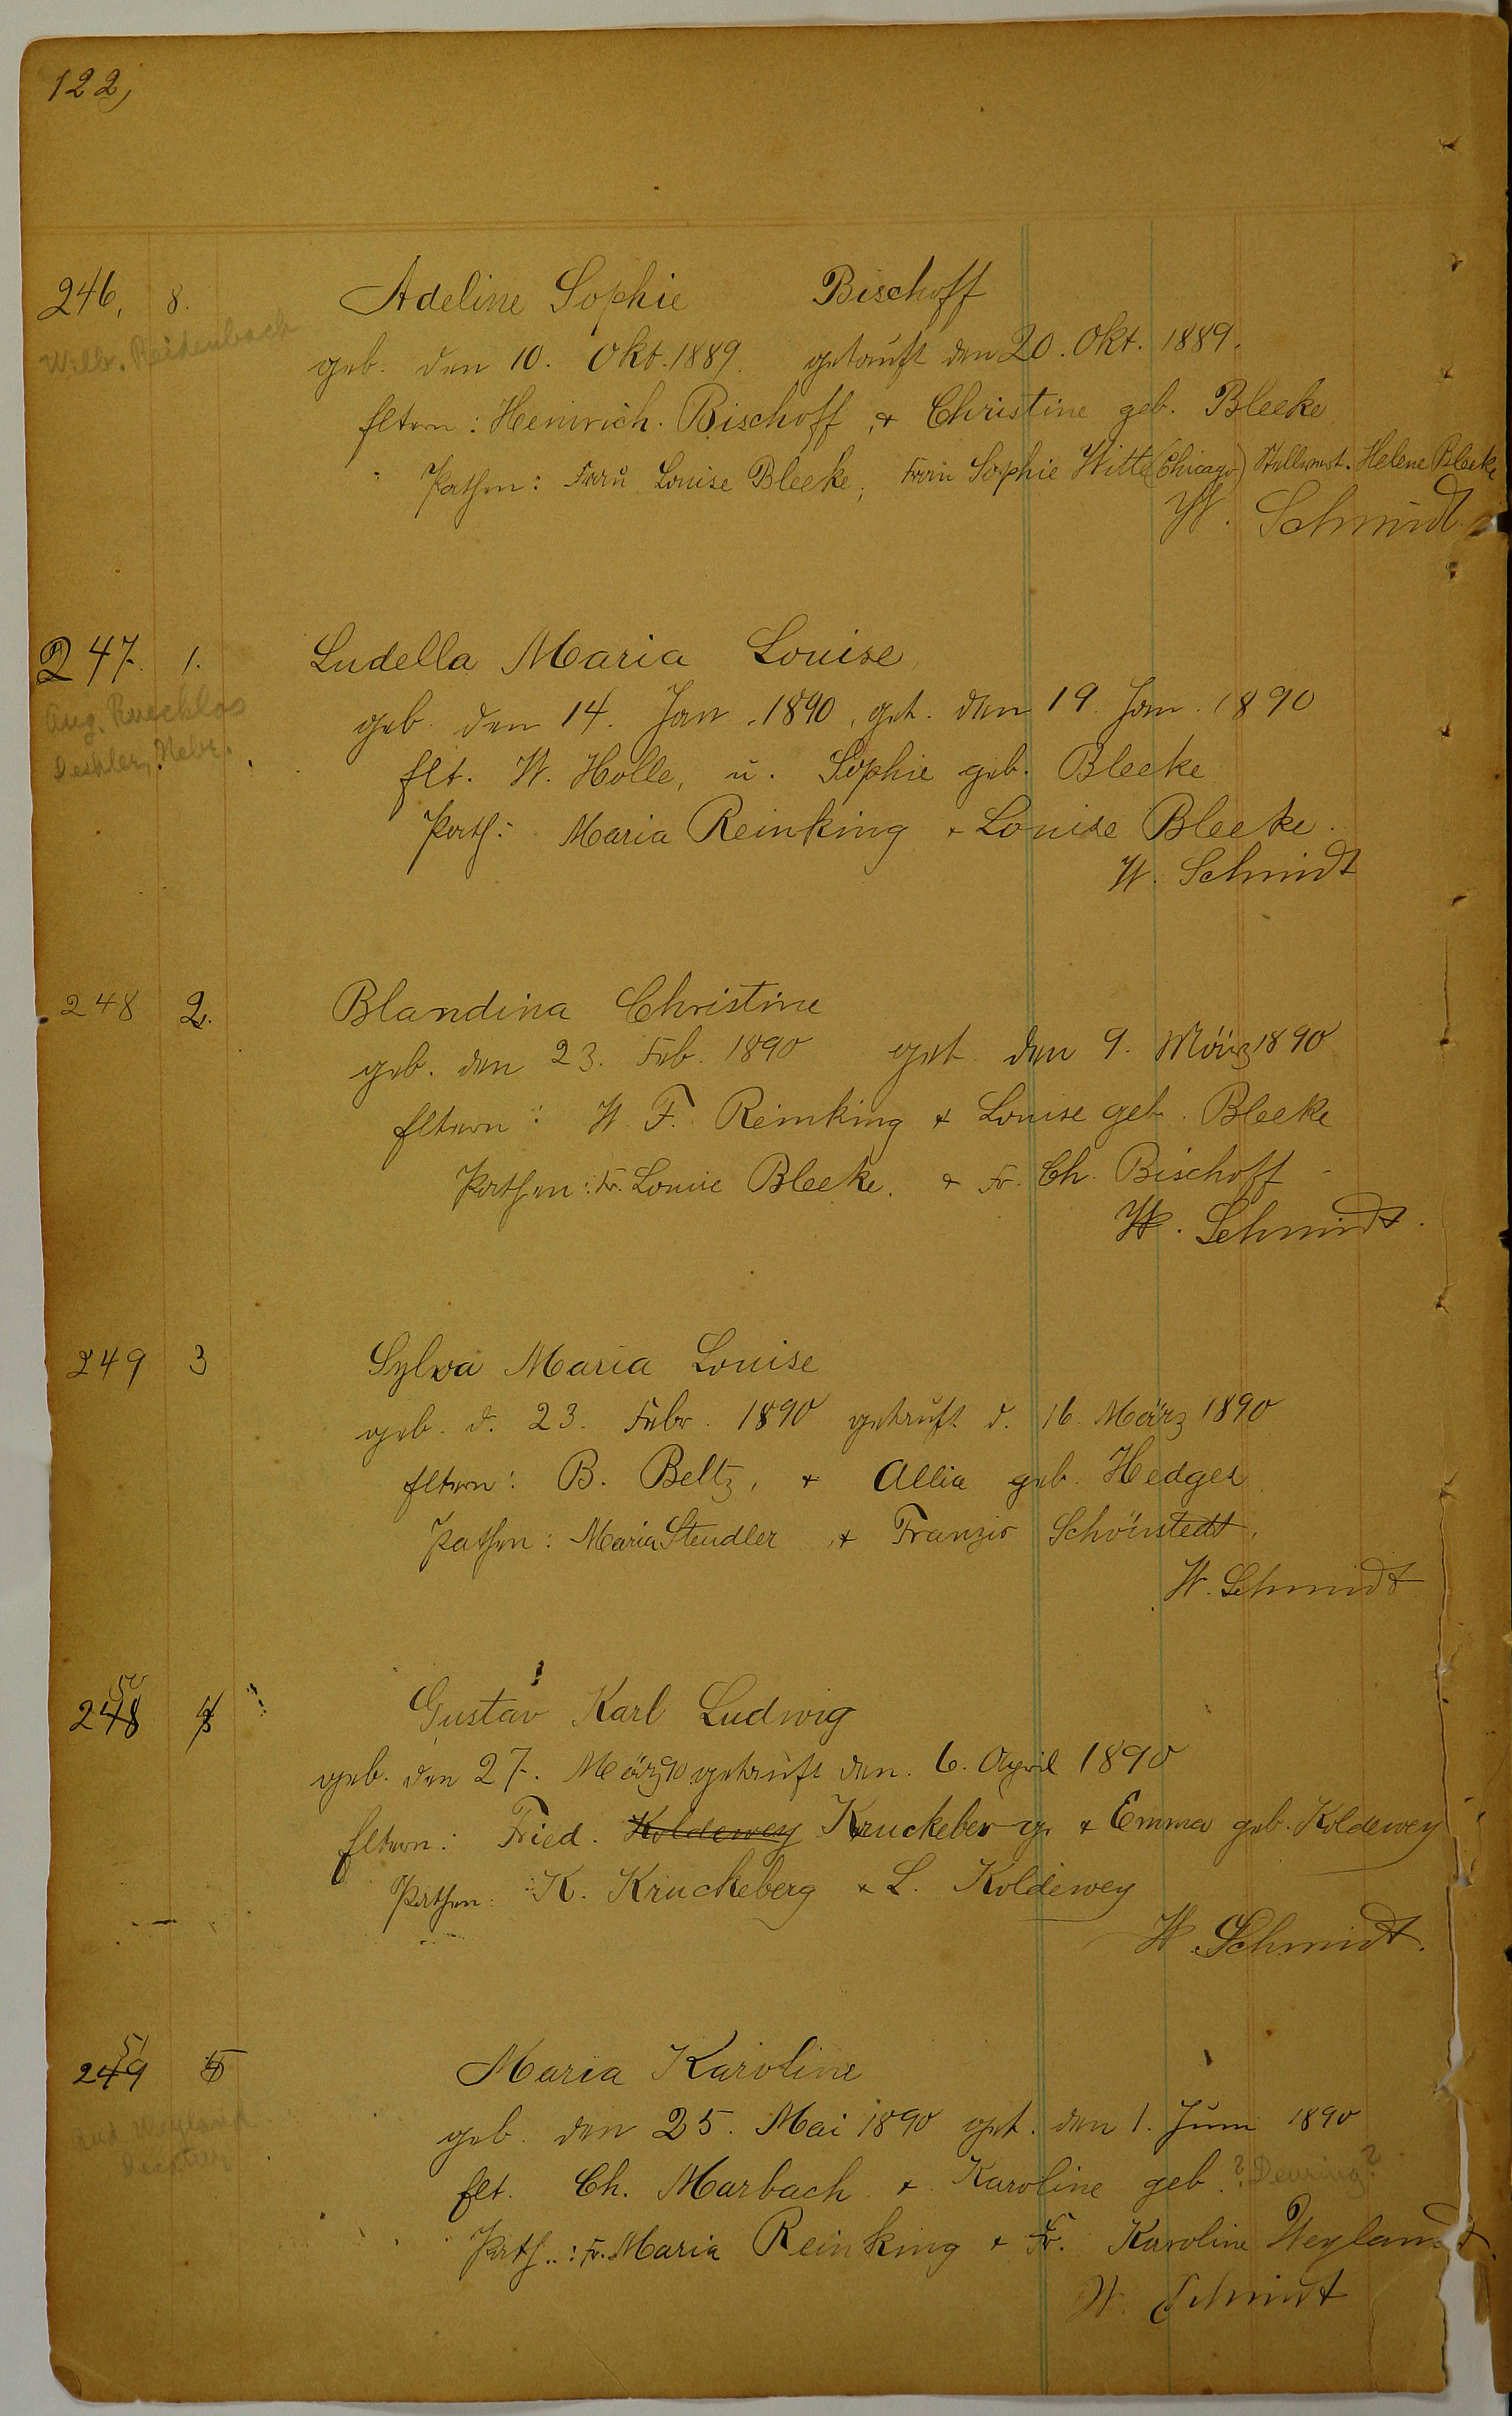 122,
246, 8. Adeline Sophie Bischoff
Wilb. Reidenbach
geb. den 10. Okt. 1889. getauft den 20. Okt. 1889.
Eltern: Heinrich Bischoff, & Christine geb. Bleeke
Pathen: Frau Louise Bleeke; Frau Sophie Witte (Chicago) Stellvert. Helene Bleeke
W. Schmidt
247. 1. Ludella Maria Louise
Aug. Rueckloos
Deshler, Nebr.
geb. den 14. Jan. 1890, get. den 19. Jan. 1890
Elt. W. Holle, u. Sophie geb. Bleeke
Path: Maria Reinking & Louise Bleeke.
W. Schmidt
248 2. Blandina Christine
geb. den 23. Feb. 1890 get. den 9. März 1890
Eltern: W. F. Reinking & Louise geb. Bleeke
Pathen: Fr. Louise Bleeke. & Fr. Ch. Bischoff
W. Schmidt.
249 3 Sylva Maria Louise
geb. d. 23. Febr. 1890 getauft d. 16. März 1890
Eltern: B. Beltz, & Allia geb. Hedges
Pathen: Maria Stendler & Schönstedt,
W. Schmidt
248 50 4 Gustav Karl Ludwig
geb. den 27. März 90 getauft den 6. April 1890
Eltern: Fried. Koldewey Kruckeberg & Emma geb. Koldewey
Pathen: K. Kruckeberg & L. Koldewey
W. Schmidt.
249 51 5 Maria Karoline
geb. den 25. Mai 1890 get. den 1. Juni 1890
Elt. Ch. Marbach & Karoline geb. ? Deuring?
Path.: Fr. Maria Reinking & Fr. Karoline Weyland
W. Schmidt